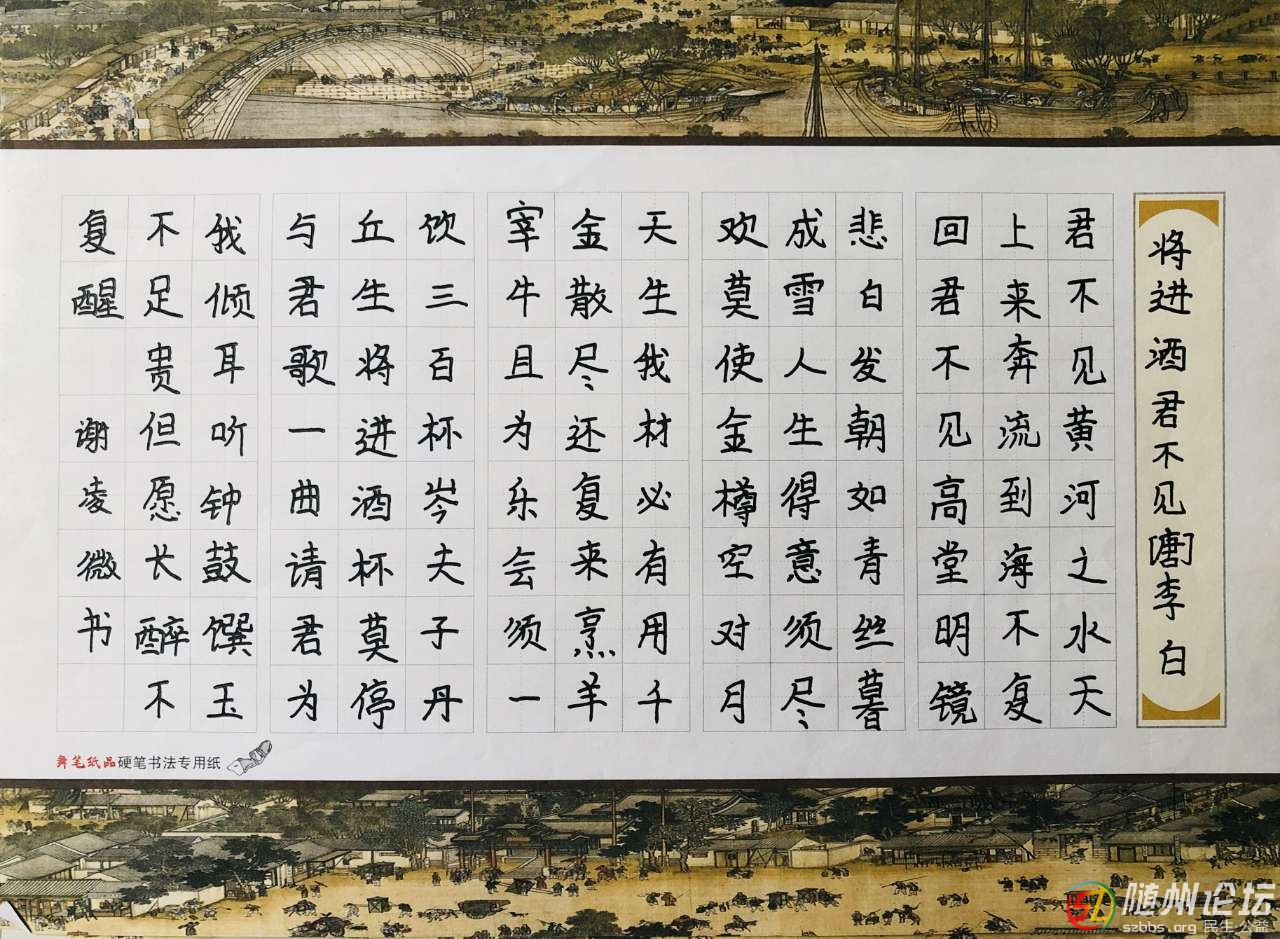 将进酒君不见[唐]李白
君不见黄河之水天
上来奔流到海不复
回君不见高堂明镜
悲白发朝如青丝暮
成雪人生得意须尽
欢莫使金樽空对月
天生我材必有用千
金散尽还复来烹羊
宰牛且为乐会须一
饮三百杯岑夫子丹
丘生将进酒杯莫停
与君歌一曲请君为
我倾耳听钟鼓馔玉
不足贵但愿长醉不
复醒 谢凌微书
舞笔纸品硬笔书法专用纸
随州论坛
szbbs.org 民生·公益